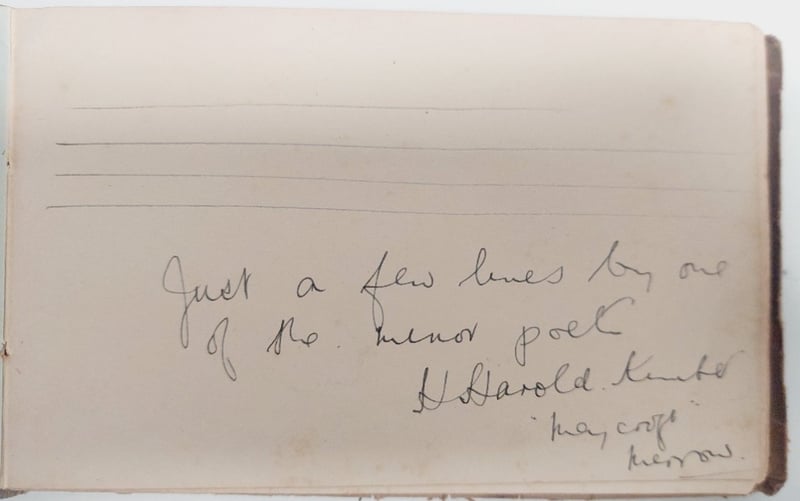 Just a few lines by one
of the minor poets
H Harold. Kimber
"Maycroft"
Merrow.